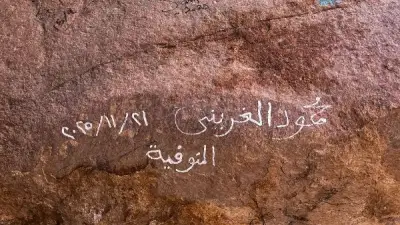 حمود الغريني ٢٠٢٥/١١/٢١
المنوفية